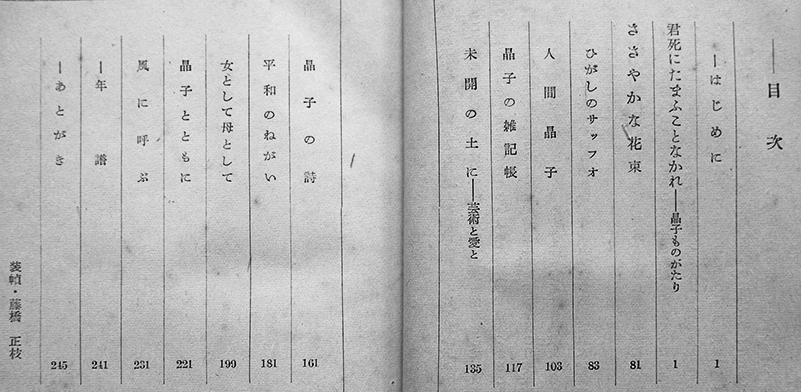 ――目次
―はじめに 1
君死にたまふことなかれ――晶子ものがたり 1
ささやかな花束 81
ひがしのサッフオ 83
人間晶子 103
晶子の雑記帳 117
未開の土に――芸術と愛と 135
晶子の詩 161
平和のねがい 181
女として母として 199
晶子とともに 221
風に呼ぶ 231
―年譜 241
―あとがき 245
装幀・藤橋 正枝